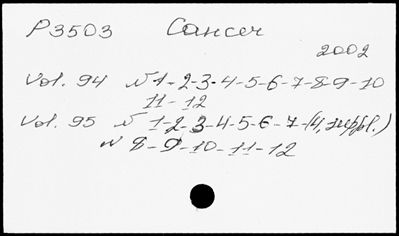 P3503 Cancer
2002
Vol. 94 N 1-2-3-4-5-6-7-8-9-10
11-12
Vol. 95 N 1-2-3-4-5-6-7-(4, suppl.)
N 8-9-10-11-12